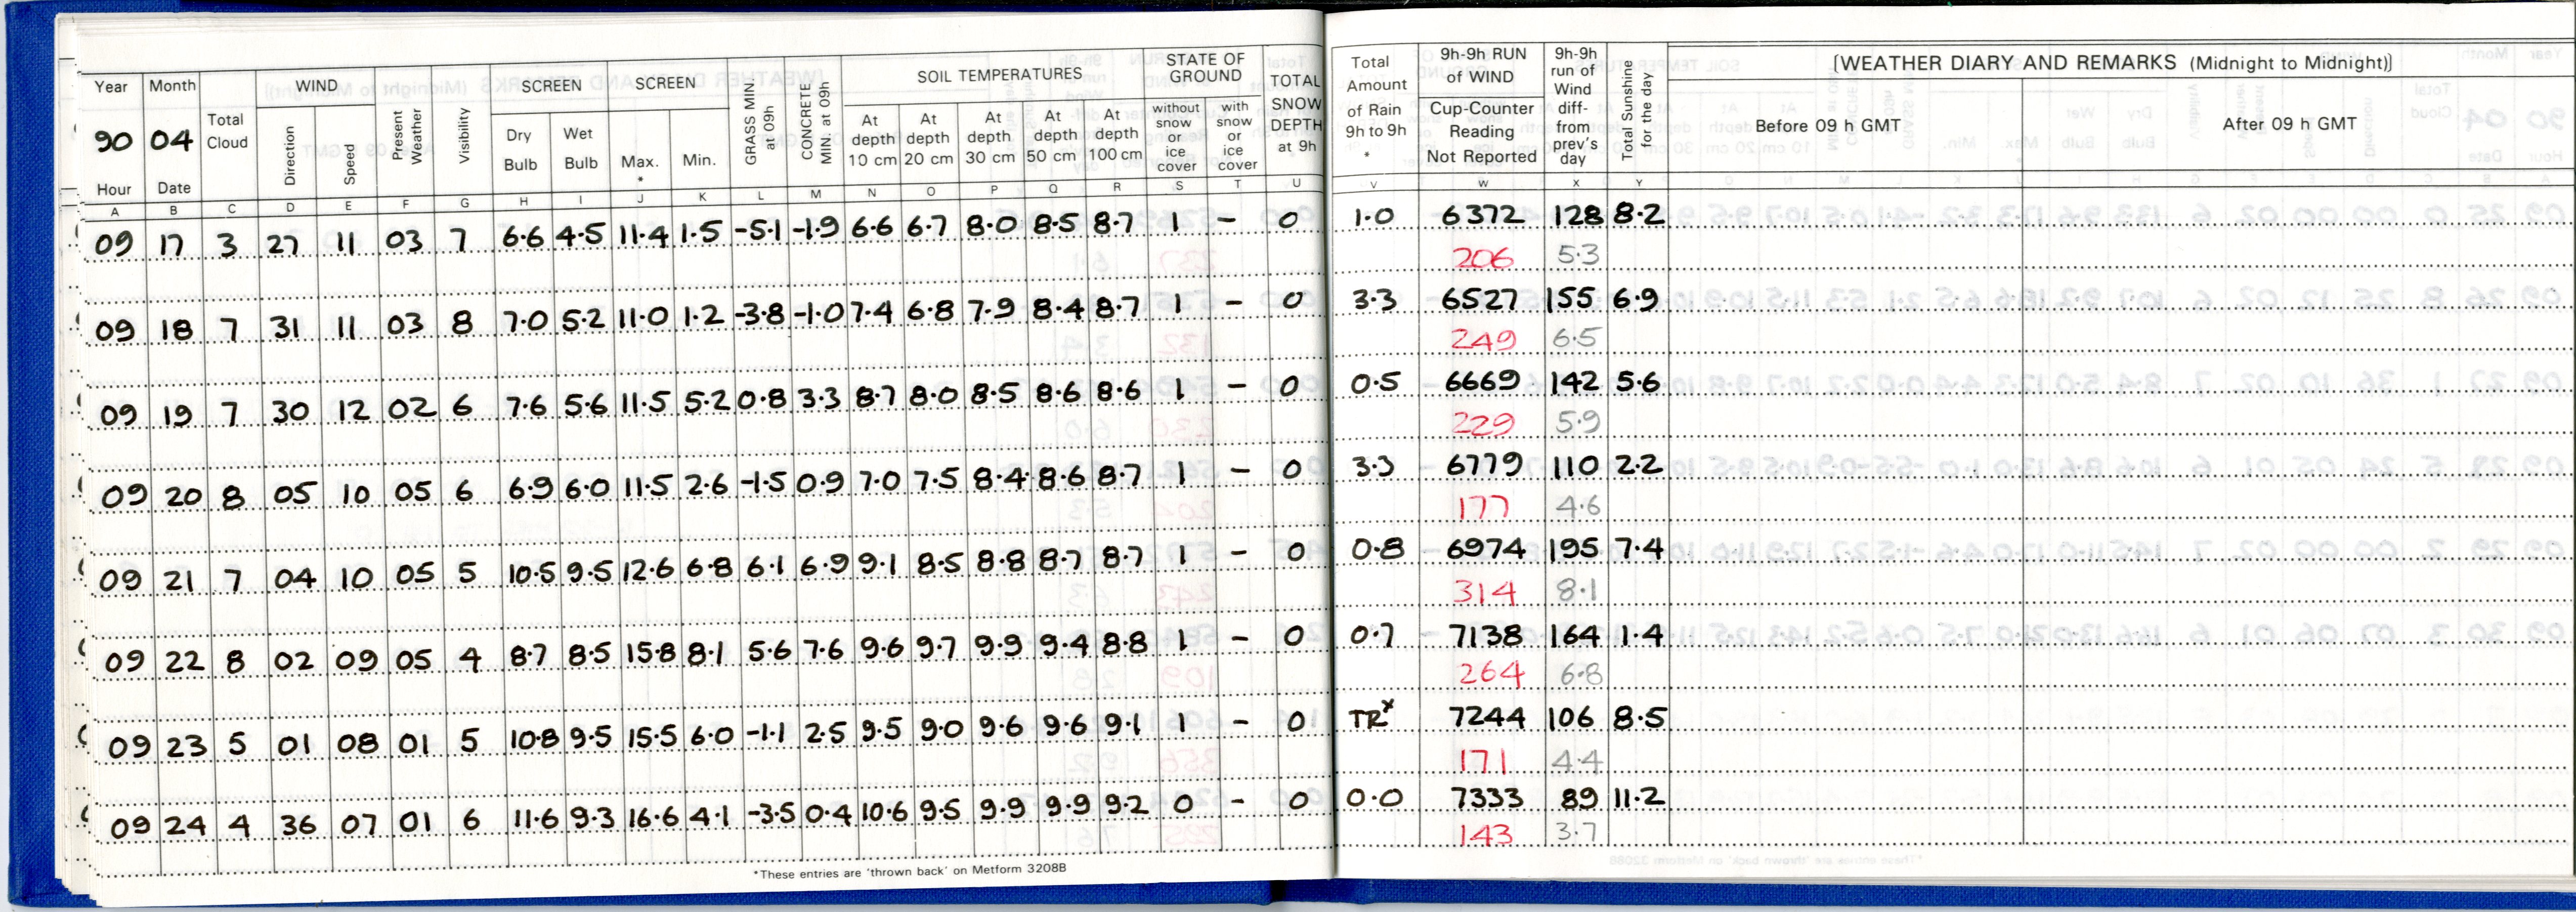 Year Month Total Cloud WIND Present Weather Visibility SCREEN SCREEN GRASS MIN at 09h CONCRETE MIN at 09h SOIL TEMPERATURES STATE OF GROUND TOTAL SNOW DEPTH at 9h Total Amount of Rain 9h to 9h * 9h-9h RUN of WIND 9h-9h run of Wind diff- from prev's day Total Sunshine for the day [WEATHER DIARY AND REMARKS (Midnight to Midnight)]
90 04 Direction Speed Dry Bulb Wet Bulb Max. * Min. At depth 10 cm At depth 20 cm At depth 30 cm At depth 50 cm At depth 100 cm without snow or ice cover with snow or ice cover Cup-Counter Reading Not Reported Before 09 h GMT After 09 h GMT
Hour Date
A B C D E F G H I J K L M N O P Q R S T U V W X Y
09 17 3 27 11 03 7 6.6 4.5 11.4 1.5 -5.1 -1.9 6.6 6.7 8.0 8.5 8.7 1 – 0 1.0 6372 128 8.2
206 5.3
09 18 7 31 11 03 8 7.0 5.2 11.0 1.2 -3.8 -1.0 7.4 6.8 7.9 8.4 8.7 1 – 0 3.3 6527 155 6.9
249 6.5
09 19 7 30 12 02 6 7.6 5.6 11.5 5.2 0.8 3.3 8.7 8.0 8.5 8.6 8.6 1 – 0 0.5 6669 142 5.6
229 5.9
09 20 8 05 10 05 6 6.9 6.0 11.5 2.6 -1.5 0.9 7.0 7.5 8.4 8.6 8.7 1 – 0 3.3 6779 110 2.2
177 4.6
09 21 7 04 10 05 5 10.5 9.5 12.6 6.8 6.1 6.9 9.1 8.5 8.8 8.7 8.7 1 – 0 0.8 6974 195 7.4
314 8.1
09 22 8 02 09 05 4 8.7 8.5 15.8 8.1 5.6 7.6 9.6 9.7 9.9 9.4 8.8 1 – 0 0.7 7138 164 1.4
264 6.8
09 23 5 01 08 01 5 10.8 9.5 15.5 6.0 -1.1 2.5 9.5 9.0 9.6 9.6 9.1 1 – 0 TRx 7244 106 8.5
171 4.4
09 24 4 36 07 01 6 11.6 9.3 16.6 4.1 -3.5 0.4 10.6 9.5 9.9 9.9 9.2 0 – 0 0.0 7333 89 11.2
143 3.7
*These entries are 'thrown back' on Metform 3208B